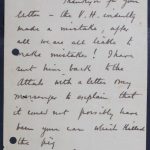 Thank you for your
letter — the V.H. evidently
made a mistake, after
all we are all liable to
make mistakes! I have
sent him back to the
Attah with a letter my
messenger to explain that
it could not possibly have
been your can which killed
the pig